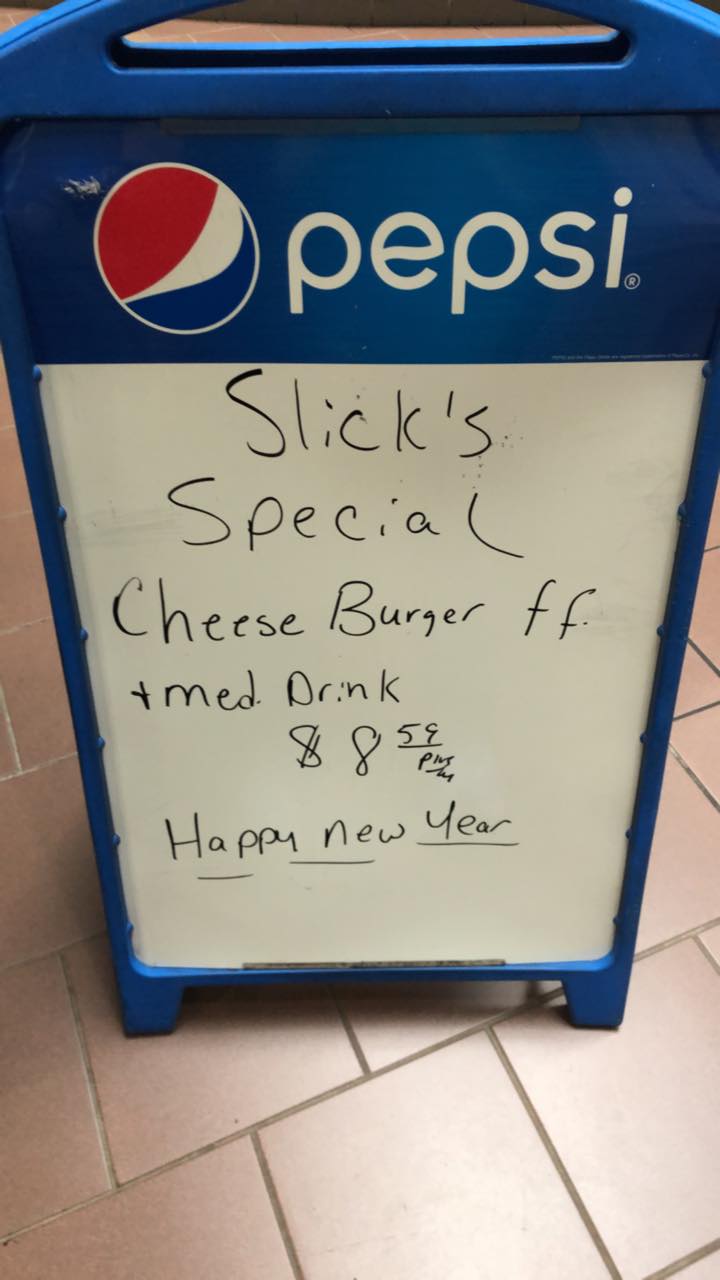 pepsi®
Slick's
Special
Cheese Burger ff.
+ med. Drink
$ 8 59
plus
Happy new Year